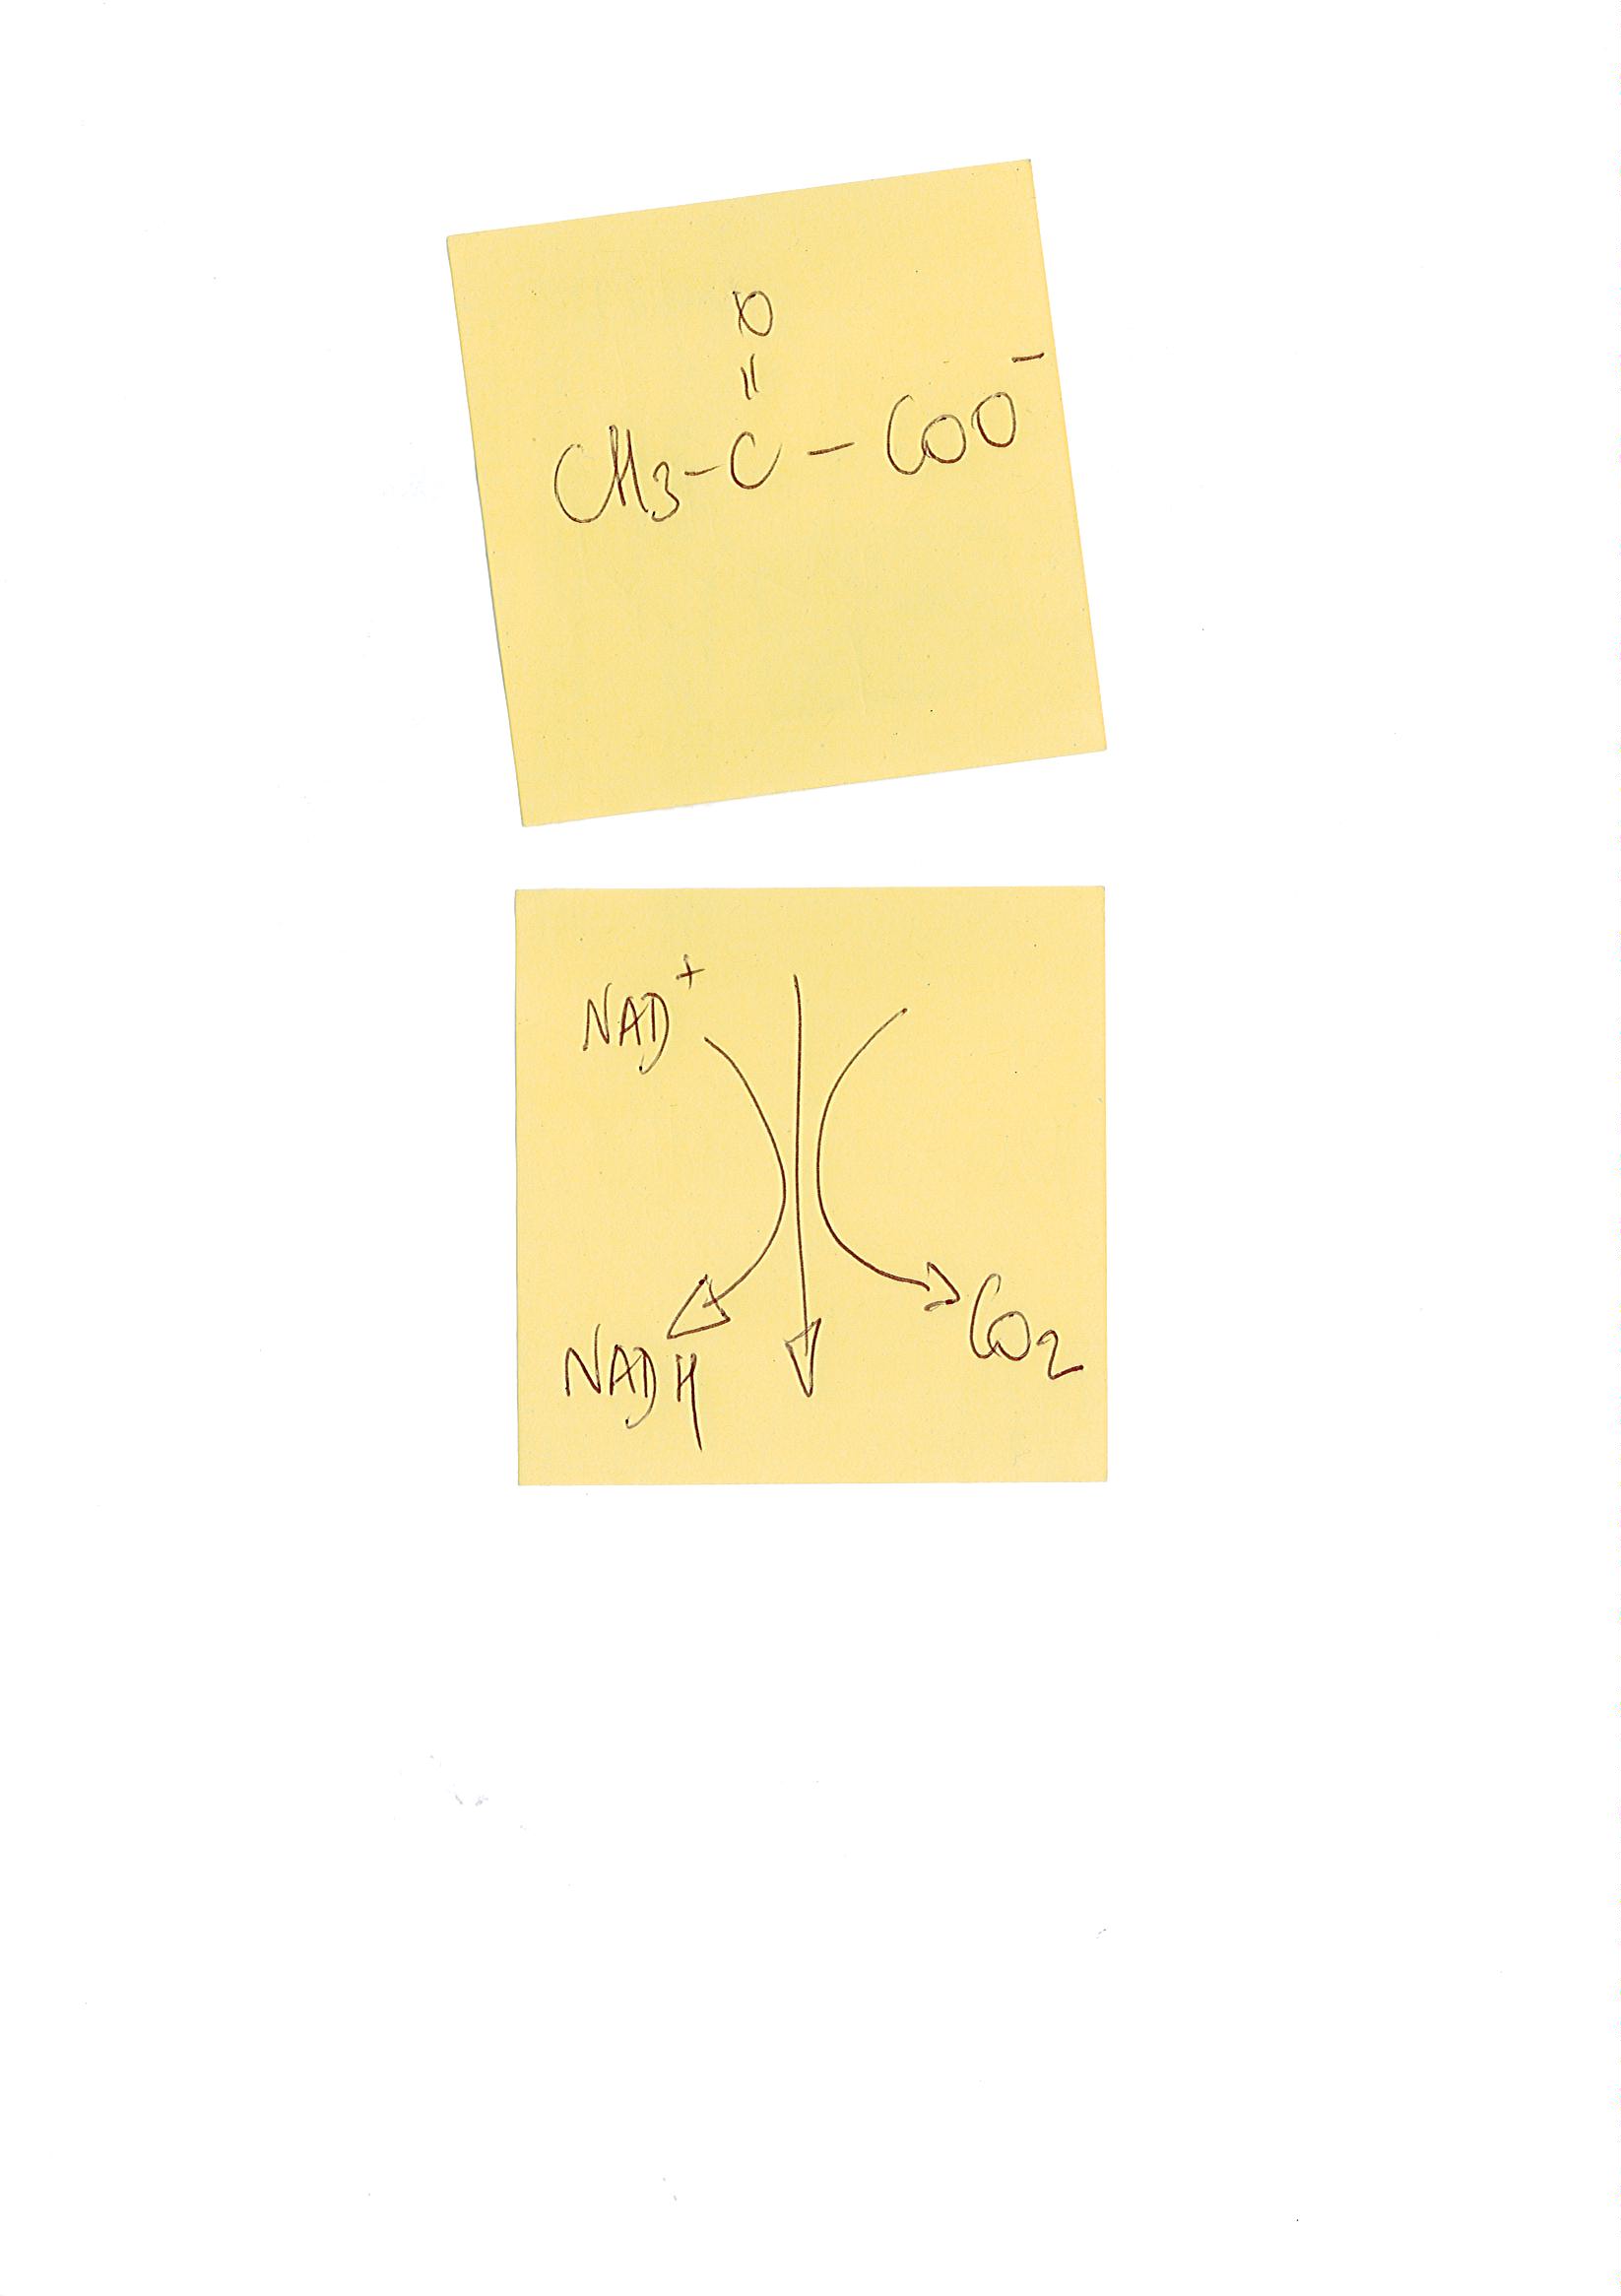 O
||
CH3-C-COO-
NAD+
NADH
CO2